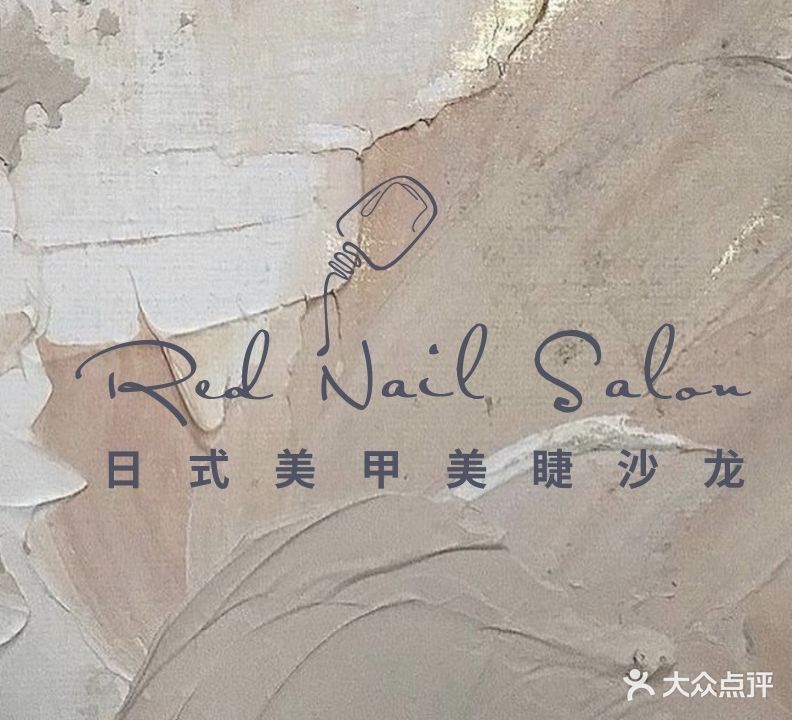 Red Nail Salon
日式美甲美睫沙龙
大众点评